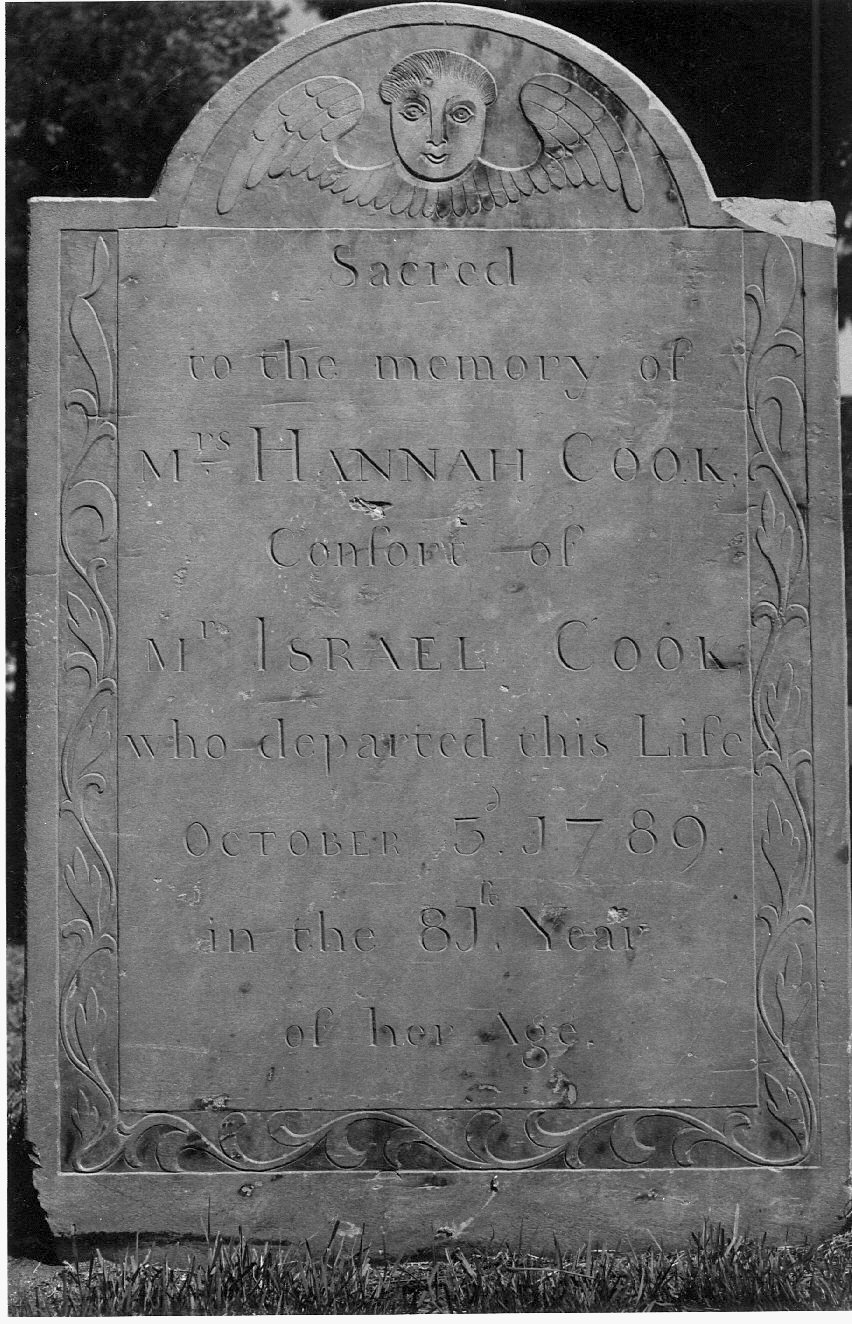 Sacred
to the memory of
Mrs HANNAH COOK,
Conſort of
Mr ISRAEL COOK,
who departed this Life
OCTOBER 3d. 1789.
in the 81st. Year
of her Age.